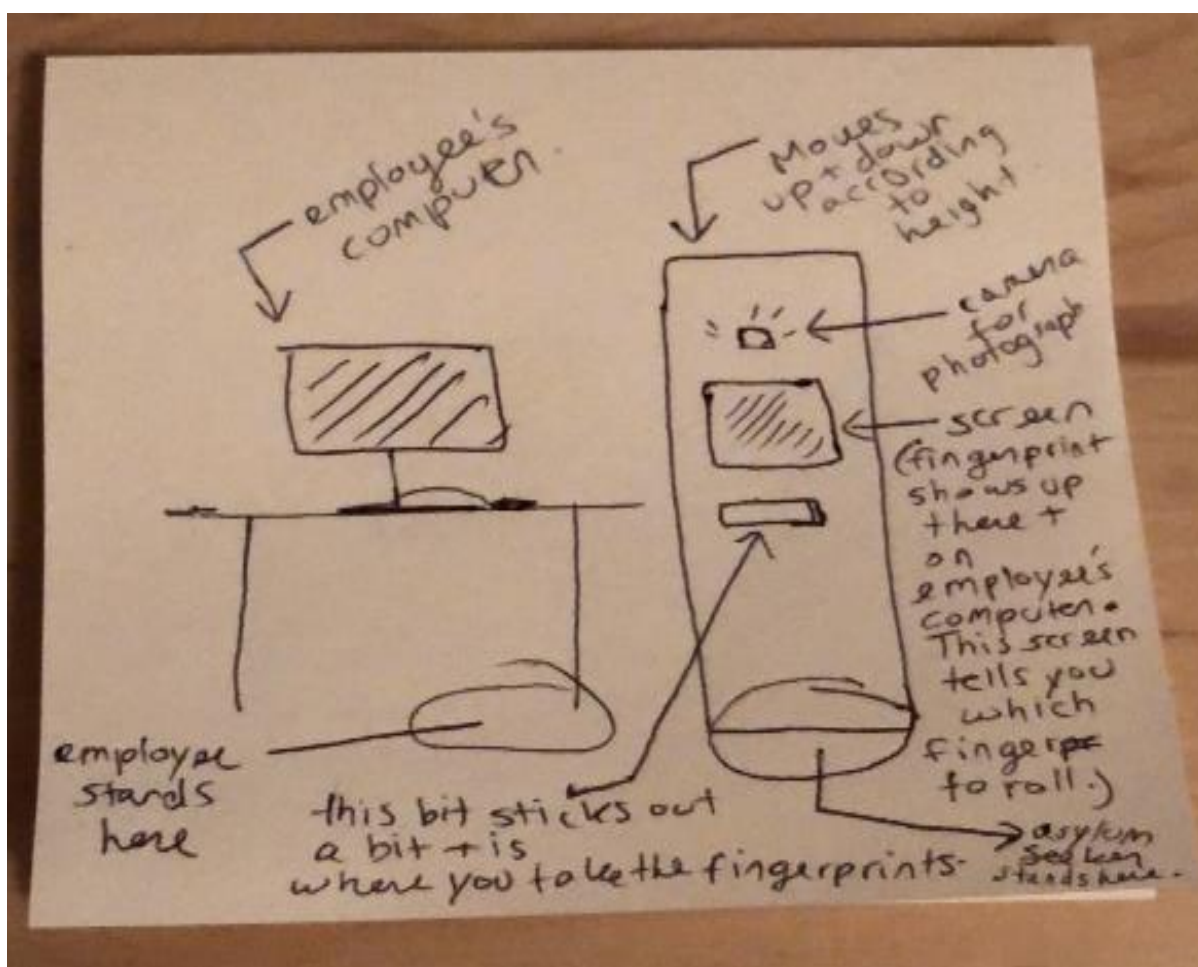 employee's
computer
Moves
up + down
according
to
height
camera
for
photograph
screen
(fingerprint
shows up
there +
on
employee's
computer.
This screen
tells you
which
finger
to roll.)
employee
stands
here
this bit sticks out
a bit + is
where you take the fingerprints.
asylum
seeker
stands here.